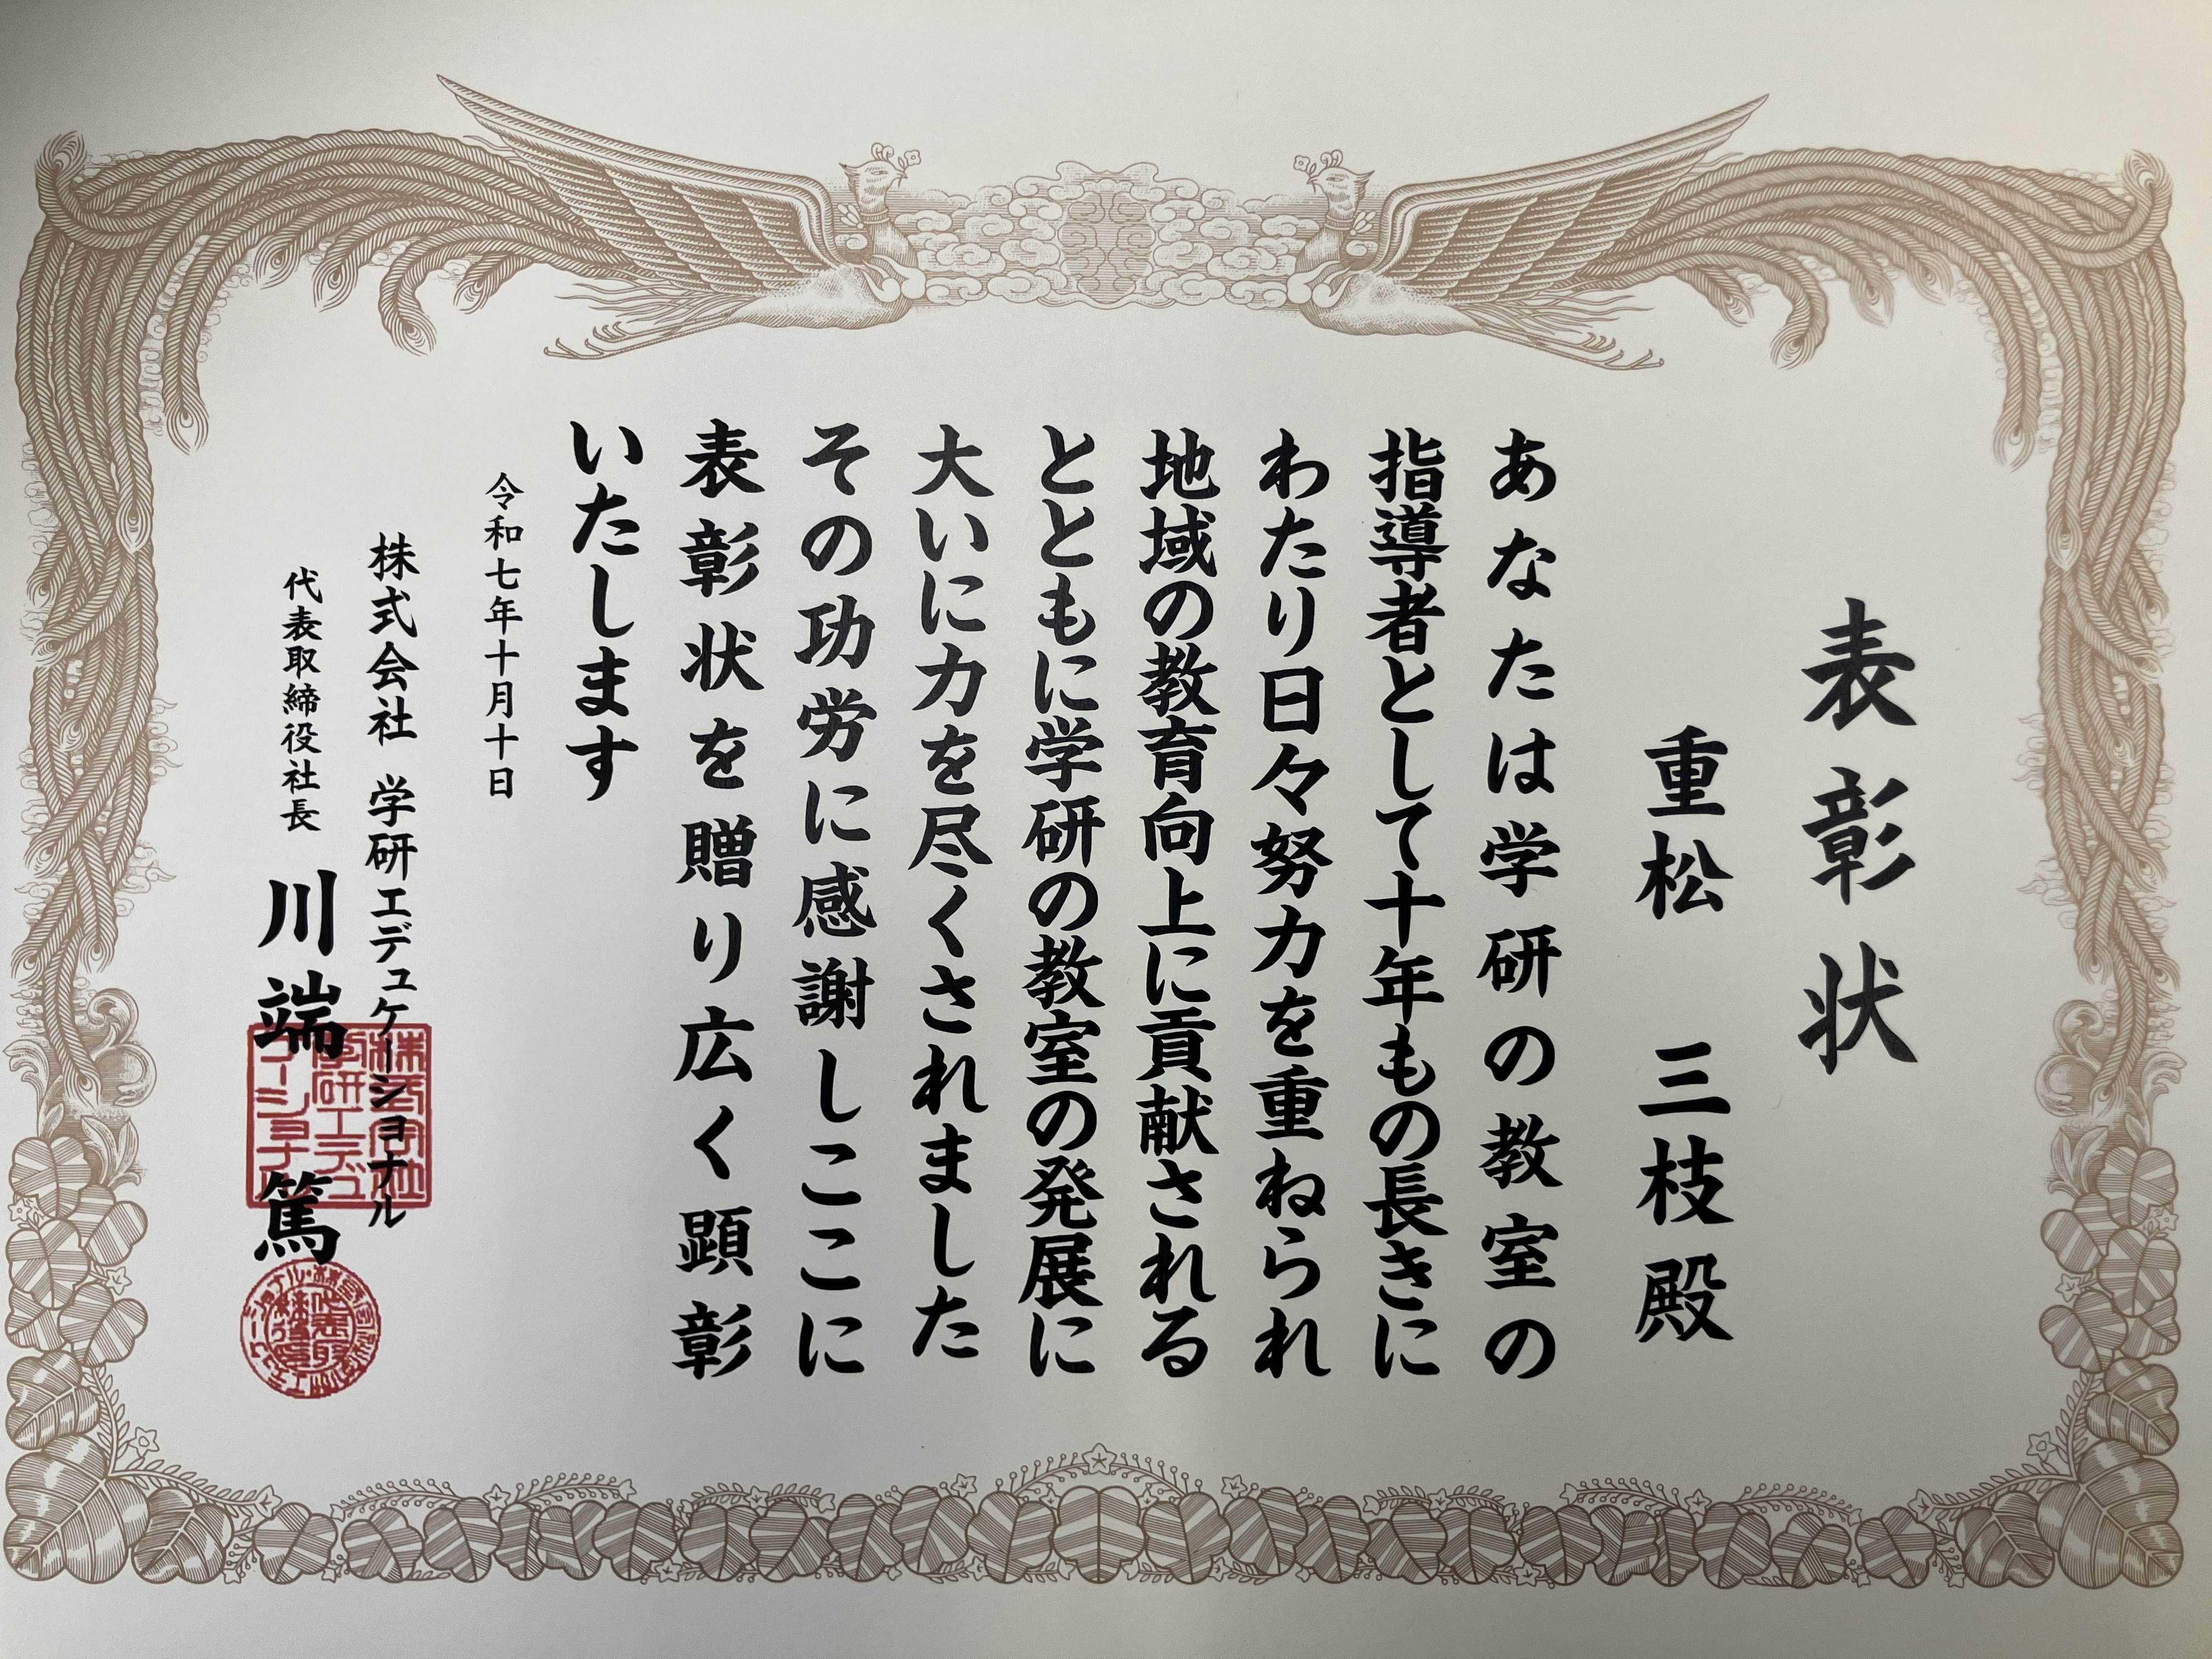 表彰状
重松 三枝 殿
あなたは学研の教室の
指導者として十年もの長きに
わたり日々努力を重ねられ
地域の教育向上に貢献される
とともに学研の教室の発展に
大いに力を尽くされました
その功労に感謝しここに
表彰状を贈り広く顕彰
いたします
令和七年十月十日
株式会社 学研エデュケーショナル
代表取締役社長 川端 篤